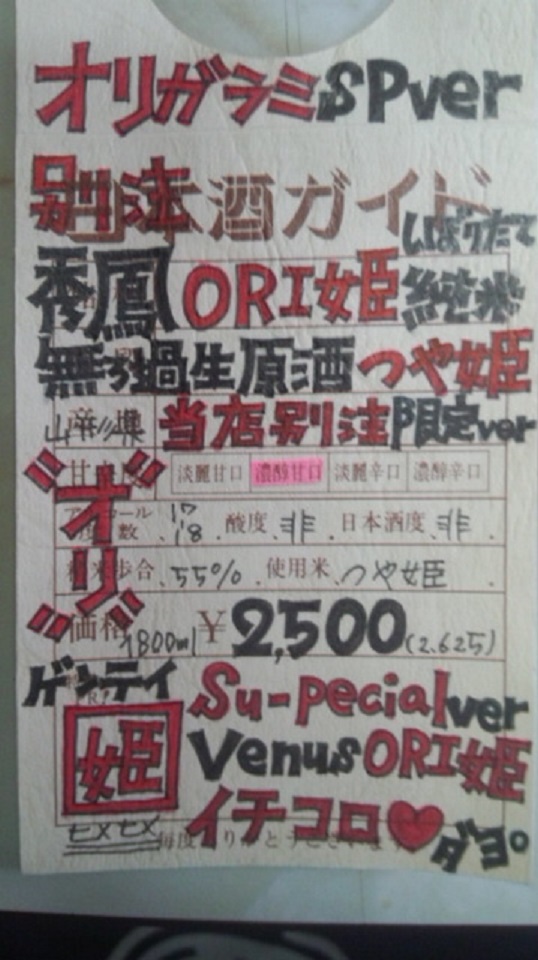 オリガラミSPver
別注
日本酒ガイド
しぼりたて
秀鳳ORI姫純米
無ろ過生原酒つや姫
山形県 当店別注限定ver
淡麗甘口 濃醇甘口 淡麗辛口 濃醇辛口
"オリ"
アルコール度数 17-18 酸度 非 日本酒度 非
精米歩合 55% 使用米 つや姫
価格 1800ml ¥2,500(2.625)
ゲンテイ
Su-pecialver
姫
Venus ORI姫
イチコロ♥ダヨ。
毎度ありがとうございます